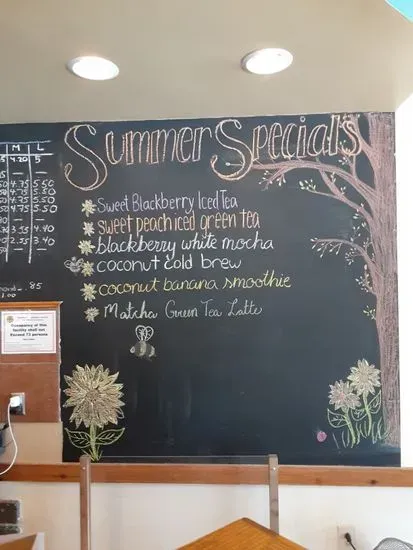 Summer Specials
Sweet Blackberry Iced Tea
sweet peach iced green tea
blackberry white mocha
coconut cold brew
coconut banana smoothie
Matcha Green Tea Latte
M L
4.20 5
4.75 5.50
4.75 5.50
4.75 5.50
3.40
.85
1.00
Occupancy of this
facility shall not
Exceed 73 persons